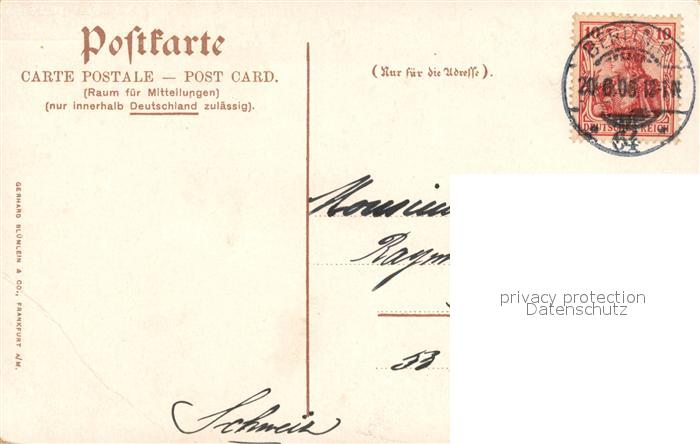 Postkarte
CARTE POSTALE — POST CARD.
(Raum für Mitteilungen)
(nur innerhalb Deutschland zulässig).
(Nur für die Adresse).
10 10
BERLIN
20.6.06 12-1N
DEUTSCHES REICH
64
GERHARD BLÜMLEIN & CO., FRANKFURT A/M.
Monsieur
Raym
53
Schweiz
privacy protection
Datenschutz